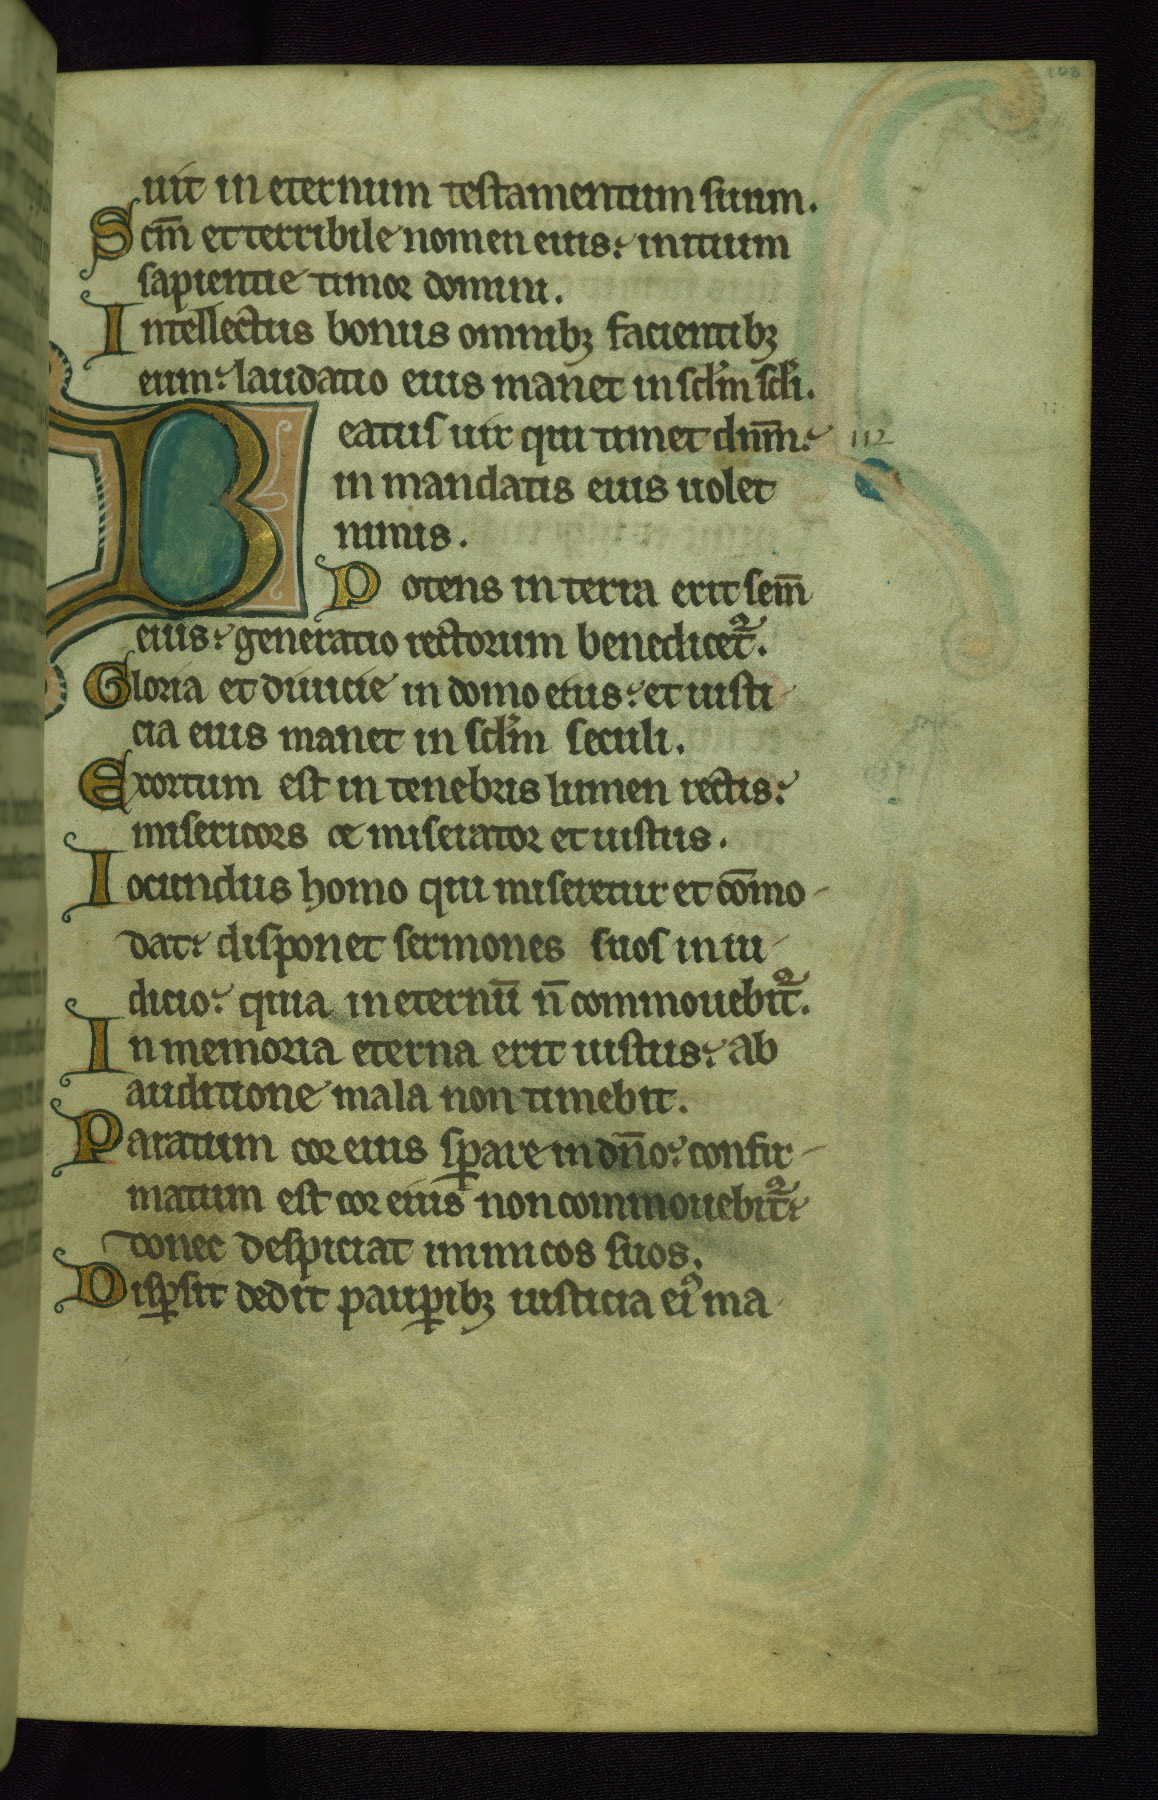 108
uit in eternum testamentum suum.
Scm̄ et terribile nomen eius: initium
sapientie timor domini.
Intellectus bonus omnibꝫ facientibꝫ
eum: laudatio eius manet in sclm̄ scl̄i.
Beatus uir qui timet dnm̄: 112
in mandatis eius uolet
nimis.
Potens in terra erit sem̄
eius: generatio rectorum benedicet᷑.
Gloria et diuicie in domo eius: et iusti-
cia eius manet in sclm̄ seculi.
Exortum est in tenebris lumen rectis:
misericors et miserator et iustus.
Iocundus homo qui miseretur et cōmo-
dat: disponet sermones suos in iu-
dicio: quia in eternū n̄ commouebit᷑.
In memoria eterna erit iustus: ab
auditione mala non timebit.
Paratum cor eius sꝑare in dn̄o: confir-
matum est cor eius non commouebit᷑:
donec despiciat inimicos suos.
Disꝑsit dedit pauꝑibꝫ iusticia eiꝰ ma-